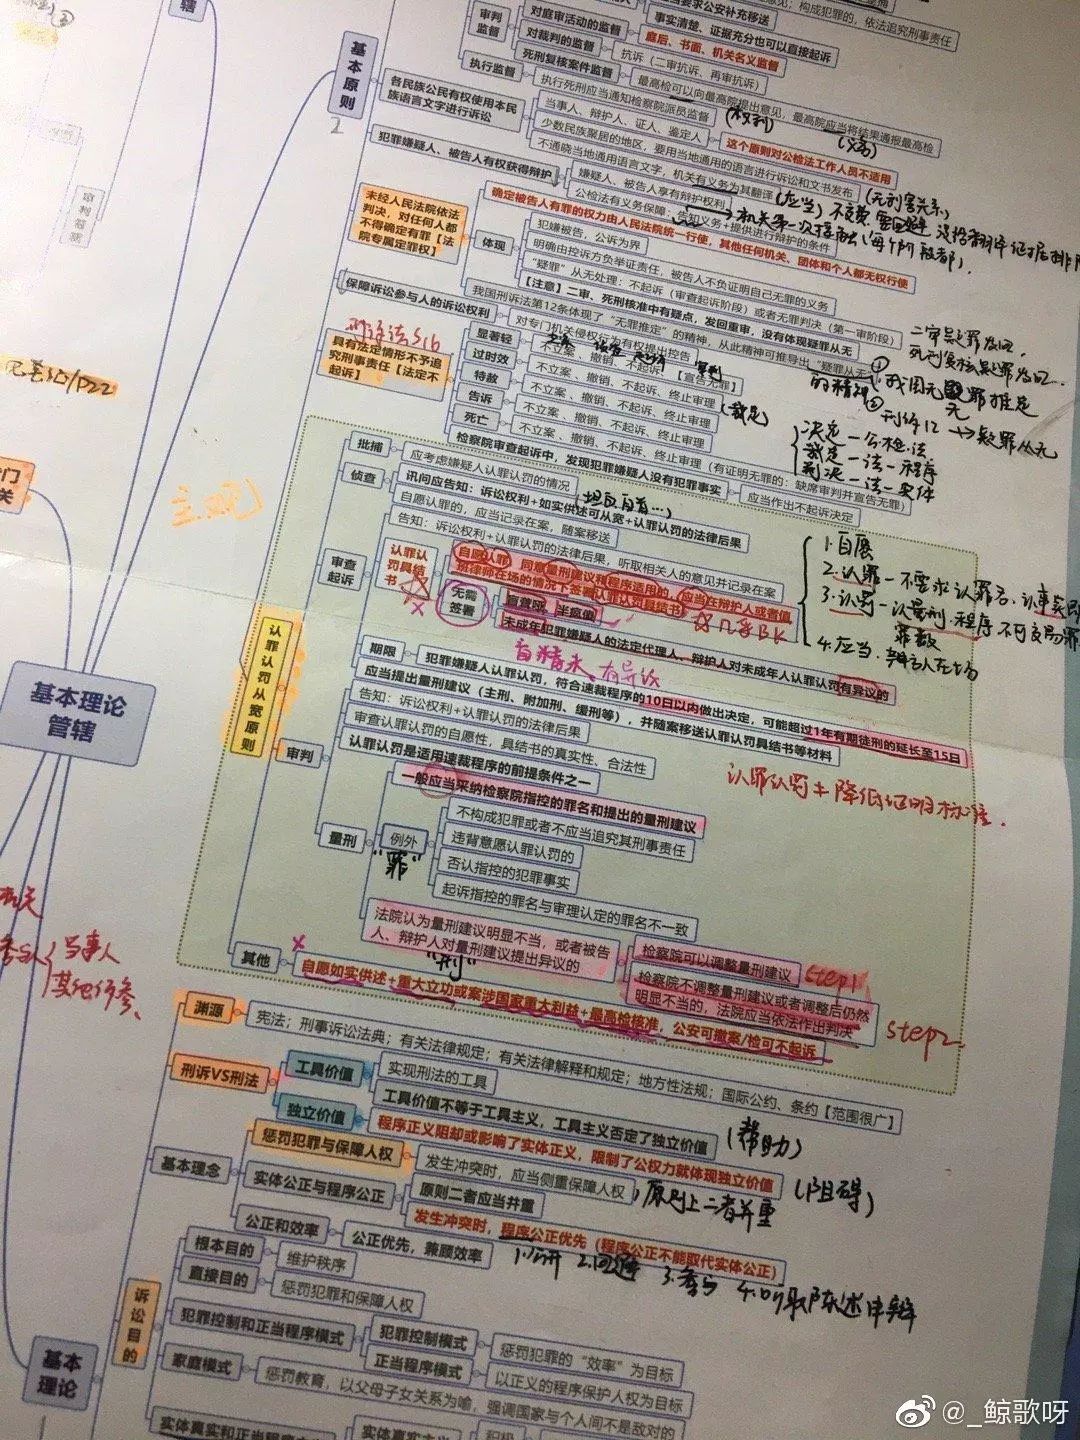 辖
基本原则
2
审判监督
对庭审活动的监督
对裁判的监督
死刑复核案件监督
执行监督
要求公安补充移送
事实清楚、证据充分也可以直接起诉
庭后、书面、机关名义监督
抗诉（二审抗诉、再审抗诉）
最高检可以向最高院提出意见，最高院应当将结果通报最高检
执行死刑应当通知检察院派员监督
(权利)
(义务)
各民族公民有权使用本民族语言文字进行诉讼
当事人、辩护人、证人、鉴定人
这个原则对公检法工作人员不适用
少数民族聚居的地区，要用当地通用的语言进行诉讼和文书发布
不通晓当地通用语言文字，机关有义务为其翻译
(应当)
犯罪嫌疑人、被告人有权获得辩护
嫌疑人、被告人享有辩护权利
公检法有义务保障：告知义务+提供进行辩护的条件
未经人民法院依法判决，对任何人都不得确定有罪【法院专属定罪权】
确定被告人有罪的权力由人民法院统一行使，其他任何机关、团体和个人都无权行使
体现
犯嫌被告，公诉为界
明确由控诉方负举证责任，被告人不负证明自己无罪的义务
“疑罪”从无处理：不起诉（审查起诉阶段）或者无罪判决（第一审阶段）
【注意】二审、死刑核准中有疑点，发回重审，没有体现疑罪从无
我国刑诉法第12条体现了“无罪推定”的精神，从此精神可推导出“疑罪从无”
保障诉讼参与人的诉讼权利
对专门机关侵权行为有权提出控告
刑诉法S16
具有法定情形不予追究刑事责任【法定不起诉】
显著轻
不立案、撤销、不起诉、【宣告无罪】
过时效
不立案、撤销、不起诉、终止审理
特赦
不立案、撤销、不起诉、终止审理
告诉
不立案、撤销、不起诉、终止审理
死亡
不立案、撤销、不起诉、终止审理（有证明无罪的：缺席审判并宣告无罪）
(裁定)
检察院审查起诉中，发现犯罪嫌疑人没有犯罪事实
应当作出不起诉决定
决定一公检法
裁定一法一程序
判决一法一实体
认罪认罚从宽原则
批捕
应考虑嫌疑人认罪认罚的情况
侦查
讯问应告知：诉讼权利+如实供述可从宽+认罪认罚的法律后果
自愿认罪的，应当记录在案，随案移送
审查起诉
告知：诉讼权利+认罪认罚的法律后果，听取相关人的意见并记录在案
认罪认罚具结书
自愿认罪、同意量刑建议和程序适用的，应当在辩护人或者值班律师在场的情况下签署认罪认罚具结书
无需签署
盲聋哑、半疯傻
未成年犯罪嫌疑人的法定代理人、辩护人对未成年人认罪认罚有异议的
1.自愿
2.认罪一不要求认罪名，认事实即
4.应当
期限
犯罪嫌疑人认罪认罚，符合速裁程序的10日以内做出决定，可能超过1年有期徒刑的延长至15日
应当提出量刑建议（主刑、附加刑、缓刑等），并随案移送认罪认罚具结书等材料
审判
告知：诉讼权利+认罪认罚的法律后果
审查认罪认罚的自愿性，具结书的真实性、合法性
认罪认罚是适用速裁程序的前提条件之一
认罪认罚≠降低证明标准.
量刑
一般应当采纳检察院指控的罪名和提出的量刑建议
例外
“罪”
不构成犯罪或者不应当追究其刑事责任
违背意愿认罪认罚的
否认指控的犯罪事实
起诉指控的罪名与审理认定的罪名不一致
法院认为量刑建议明显不当，或者被告人、辩护人对量刑建议提出异议的
“刑”
检察院可以调整量刑建议
step1
检察院不调整量刑建议或者调整后仍然明显不当的，法院应当依法作出判决
step2
其他
自愿如实供述+重大立功或案涉国家重大利益+最高检核准，公安可撤案/检可不起诉
基本理论管辖
当事人
其他诉参
渊源
宪法；刑事诉讼法典；有关法律规定；有关法律解释和规定；地方性法规；国际公约、条约【范围很广】
刑诉VS刑法
工具价值
实现刑法的工具
工具价值不等于工具主义，工具主义否定了独立价值
(帮助)
独立价值
程序正义阻却或影响了实体正义，限制了公权力就体现独立价值
(阻碍)
基本理念
惩罚犯罪与保障人权
发生冲突时，应当侧重保障人权
原则上二者并重
实体公正与程序公正
原则二者应当并重
发生冲突时，程序公正优先（程序公正不能取代实体公正）
公正和效率
公正优先，兼顾效率
1.公开 2.回避 3.参与 4.听取陈述申辩
诉讼目的
根本目的
维护秩序
直接目的
惩罚犯罪和保障人权
犯罪控制和正当程序模式
犯罪控制模式
惩罚犯罪的“效率”为目标
正当程序模式
以正义的程序保护人权为目标
家庭模式
惩罚教育，以父母子女关系为喻，强调国家与个人间不是敌对的
实体真实主义
积极
基本理论
1
@_鲸歌呀